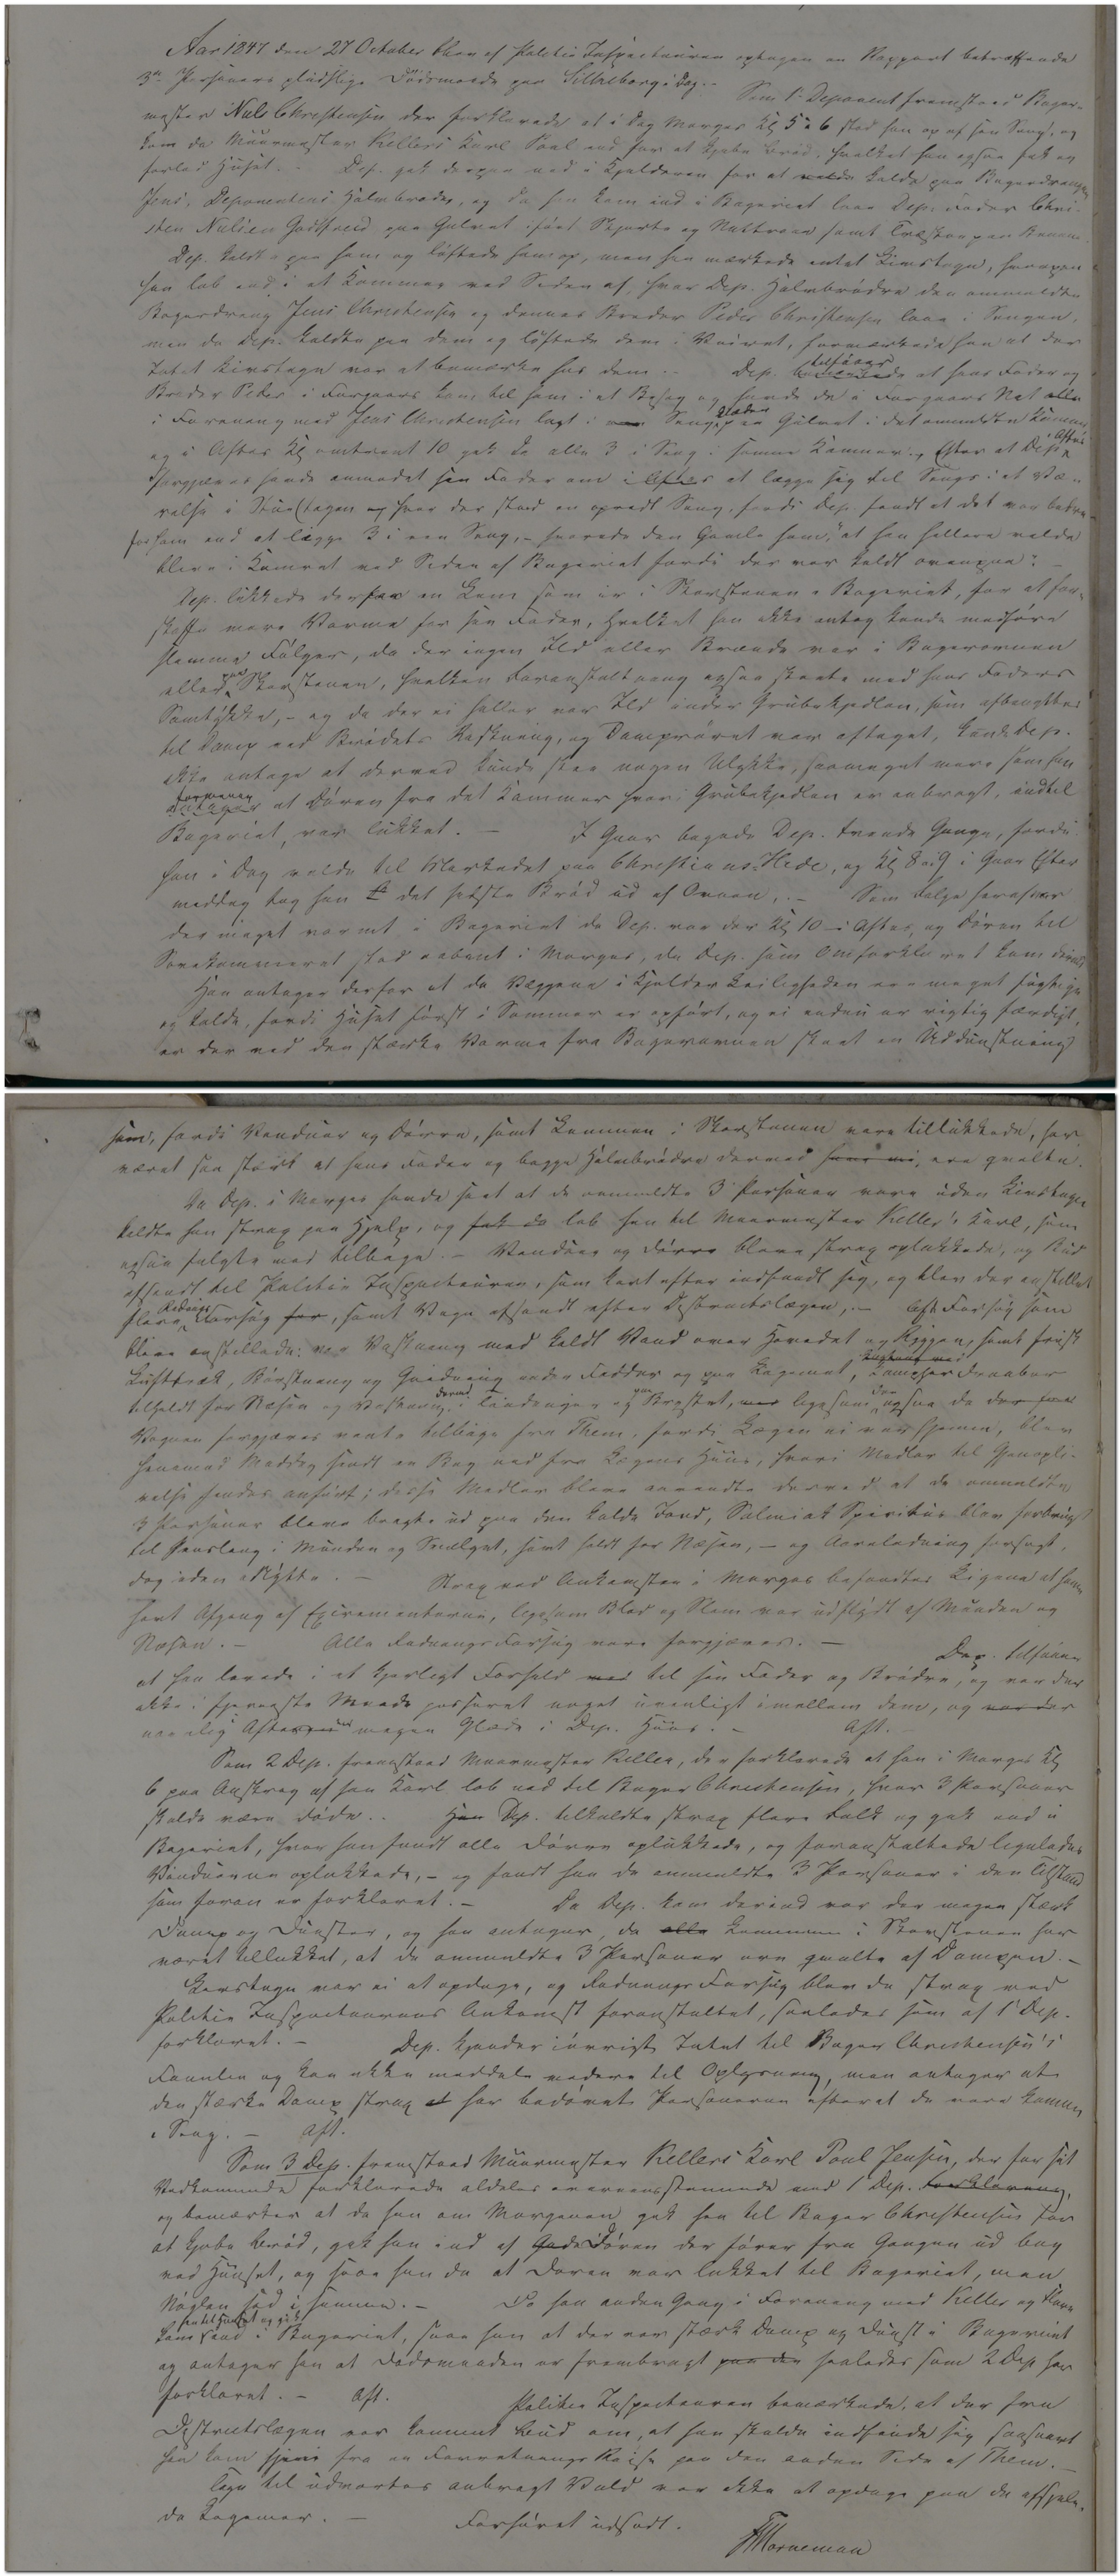 Aar 1847 den 27 October blev af Politie Inspecteuren optagen en Rapport betræffende
3de Personers pludslige Dødsmaade paa Silkeborg i Dag. - Som 1' Deponent fremstod Bager-
mester Niels Christensen der forklarede at i Dag Morges Kl 5 a 6 stod han op af sin Seng, og
kom da Muurmester Kellers Karl Poul ind for at kjøbe Brød, hvilket han ogsaa fik og
forlod Huset. - Dep. gik derpaa ned i Kjelderen for at kalde paa Bagerdrengen
Jens, Deponentens Halvbroder, og da han kom ind i Bageriet laae Dep. Fader Chri-
sten Nielsen Godtfred paa Gulvet iført Skjorte og Nattrøie samt Træskoe paa Benene.
Dep. kaldte paa ham og løftede ham op, men han mærkede intet Livstegn, hvorpaa
han løb ind i et Kammer ved Siden af, hvor Dep. Halvbrødre den ommeldte
Bagerdreng Jens Christensen og dennes Broder Peder Christensen laae i Sengen,
men da Dep. kaldte paa dem og løftede dem i Veiret, formærkede han at der
Intet Livstegn var at bemærke hos dem. - Dep. tilføier at hans Fader og
Broder Peder i Forgaars kom til ham i et Besøg og havde de i Forgaars Nat alle
i Forening med Jens Christensen lagt i Sengeklæder paa Gulvet i det ommeldte Kammer
og i Aftes Kl omtrent 10 gik de alle 3 i Seng i samme Kammer, Efter at Dep. i Aftes
forgjæves havde anmodet sin Fader om at lægge sig til Sengs i et Væ-
relse i Stue Etagen hvor der stod en opredt Seng, fordi Dep. fandt at det var bedre
for ham end at ligge 3 i een Seng, - svarede den Gamle ham, "at han hellere vilde
blive i Kamret ved Siden af Bageriet fordi der var koldt ovenpaa". -
Dep. lukkede derfor en Lem som er i Skorstenen i Bageriet, for at for-
skaffe mere Varme for sin Fader, hvilket han ikke antog kunde medføre
slemme Følger, da der ingen Ild eller Brænde var i Bagerovnen
eller ved Skorstenen, hvilken Foranstaltning ogsaa skeete med hans Faders
Samtykke, - og da der ei heller var Ild under Grubekjedlen, som afbenyttes
til Damp ved Brødets Hæskning, og Damprøret var aftaget, kunde Dep.
ikke antage at derved kunde skee nogen Ulykke, saameget mere som han
formener at Døren fra det Kammer hvori Grubekjedlen er anbragt, indtil
Bageriet, var lukket. - I Gaar bagede Dep. trende Gange, fordi
han i Dag vilde til Markedet paa Christians-Hede, og Kl 8 a 9 i Gaar Efter
middag tog han det sidste Brød ud af Ovnen, - Som Følge heraf var
der meget varmt i Bageriet da Dep. var der Kl 10 i Aftes, og Døren til
Sovekammeret stod aabent i Morges, da Dep. som omforklaret kom derind
Han antager derfor at da Væggene i Kjelder Leiligheden ere meget fugtige
og kolde, fordi Huset først i Sommer er opført, og ei endnu er rigtig færdigt,
er der ved den stærke Varme fra Bagerovnen skeet en Uddunstning
som, fordi Vinduer og Dørre, samt Lemmen i Skorstenen vare tillukkede, har
været saa stærk at hans Fader og begge Halvbrødre derved ere qvalte.
Da Dep. i Morges havde seet at de ommeldte 3 Personer vare uden Livstegn
kaldte han strax paa Hjelp, og løb hen til Muurmester Keller's Karl, som
ogsaa fulgte med tilbage. - Vinduer og Dørre bleve strax oplukkede, og Bud
afsendt til Politie Inspecteuren, som kort efter indfandt sig, og blev der anstillet
flere Rednings Forsøg, samt Vogn afsendt efter Districtslægen, - Alt Forsøg som
bleve anstillede: var Vaskning med koldt Vand over Hovedet og Ryggen, samt frisk
Lufttræk, Børstning og Gnidning under Fødder og paa Legemet, Campher Draaber
tilholdt for Næsen og Vaskning dermed i Tindinger og paa Brystet, ligesom der ogsaa da
Vognen forgjæves vendte tilbage fra Them, fordi Lægen ei var hjemme, blev
henimod Middag sendt en Bog ned fra Lægens Huus, hvori Midler til Gjenopli-
velse findes anført; disse Midler bleve anvendte derved at de ommeldte
3 Personer bleve bragte ud paa den kolde Jord, Salmiak Spiritus blev forbrugt
til Pensling i Munden og Svælget, samt holdt for Næsen, - og Aareladning forsøgt,
dog uden Nytte. - Strax ved Ankomsten i Morges befandtes Ligene at have
havt Afgang af Excrementerne, ligesom Blod og Sliim var udflydt af Munden og
Næsen. - Alle Rednings Forsøg vare forgjæves. - Dep. tilføier
at han levede i et kjerligt Forhold til sin Fader og Brødre, og var der
ikke i fjerneste Maade passeret noget uvenligt imellem dem, og
navnlig Aftes var megen Glæde i Dep. Huus. - Aft. -
Som 2 Dep. fremstod Muurmester Keller, der forklarede at han i Morges Kl
6 paa Anstrag af sin Karl løb ned til Bager Christensen, hvor 3 Personer
skulde være døde. - Dep. tilkaldte strax flere Folk og gik ned i
Bageriet, hvor han fandt alle Dørre oplukkede, og foranstaltede ligeledes
Vinduerne oplukkede, - og fandt han de ommeldte 3 Personer i den Tilstand
som foran er forklaret. - Da Dep. kom derind var der megen stærk
Damp og Dunster, og han antager, da Lemmen i Skorstenen har
været tillukket, at de ommeldte 3 Personer ere qvalte af Dampen. -
Livstegn var ei at opdage, og Rednings Forsøg blev da strax ved
Politie Inspecteurens Ankomst foranstaltet, saaledes som af 1' Dep.
forklaret. - Dep. kjender iøvrigt Intet til Bager Christensen's
Familie og kan ikke meddele videre til Oplysning, men antager at
den stærke Damp strax har bedøvet Personerne efterat de vare komne
i Seng. - Aft.
Som 3 Dep. fremstod Muurmester Kellers Karl Poul Jensen, der for sit
Vedkommende forklarede aldeles overeensstemmende med 1 Dep.
og bemærker at da han om Morgenen gik hen til Bager Christensen for
at kjøbe Brød, gik han ind af Døren der fører fra Gangen ud bag
ved Huuset, og saae han da at Døren var lukket til Bageriet, men
Nøglen sad i samme. - Da han anden Gang i Forening med Keller og Flere
kom hen til Huset og gik ind i Bageriet, saae han at der var stærk Damp og Dunst i Bageriet
og antager han at Dødsmaaden er frembragt saaledes som 2 Dep har
forklaret. - Aft. Politie Inspecteuren bemærkede, at der fra
Districtslægen var kommet Bud om, at han skulde indfinde sig saasnart
han kom hjem fra en Forretnings Reise paa den anden Side af Them. -
Tegn til udvortes anbragt Vold var ikke at opdage paa de afsjele-
de Legemer. - Forhøret udsadt.
Horneman